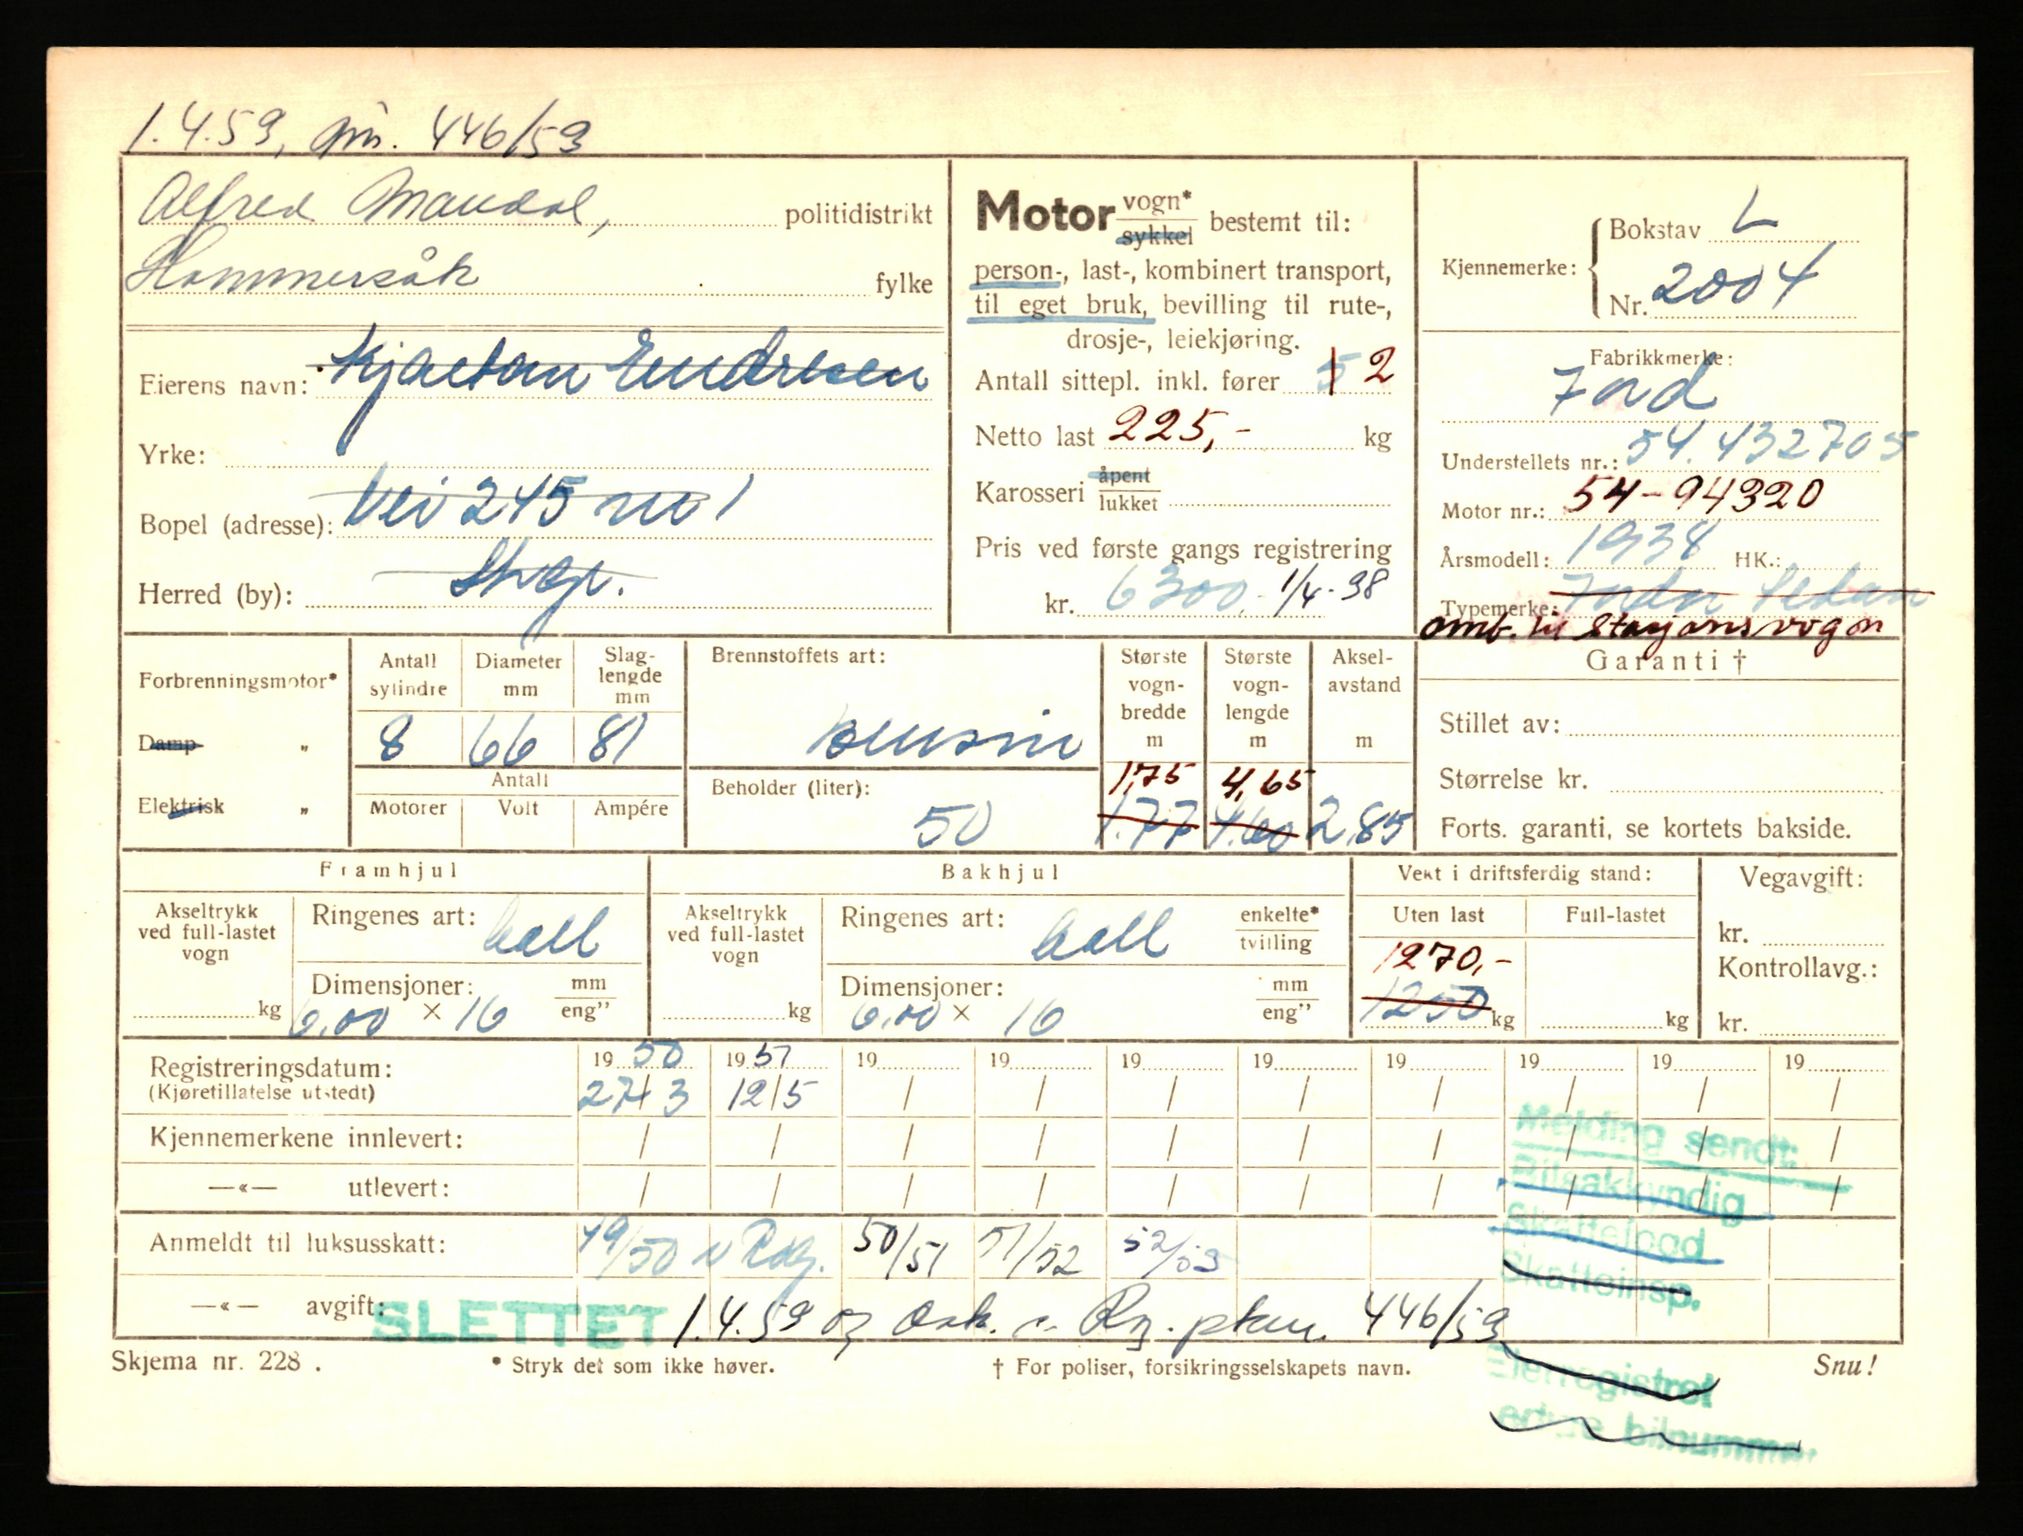 1.4.59, jnr. 446/59
Alfred Maudal, politidistrikt
Hommersåk fylke
Eierens navn: Kjaetan Endresen
Yrke:
Bopel (adresse): Vei 245 no 1
Herred (by):
Motor vogn* sykkel bestemt til:
person-, last-, kombinert transport,
til eget bruk, bevilling til rute-,
drosje-, leiekjøring.
Antall sittepl. inkl. fører 5 2
Netto last 225,- kg
Karosseri åpent lukket
Pris ved første gangs registrering
kr. 6300,- 1/4-38
Kjennemerke: Bokstav L
Nr. 2004
Fabrikkmerke:
Ford
Understellets nr.: 54.432705
Motor nr.: 54-94320
Årsmodell: 1938 HK.:
Typemerke: Fordor Sedan
omb. til Stasjonsvogn
Forbrenningsmotor*
Damp "
Elektrisk "
Antall sylindre
Diameter mm
Slag-lengde mm
8 66 81
Antall
Motorer Volt Ampére
Brennstoffets art:
bensin
Beholder (liter):
50
Største vogn-bredde m
1,75
1.77
Største vogn-lengde m
4,65
4.60
Aksel-avstand m
2,85
Garanti †
Stillet av:
Størrelse kr.
Forts. garanti, se kortets bakside.
Framhjul
Akseltrykk ved full-lastet vogn
kg
Ringenes art: ball
Dimensjoner: mm eng"
6,00 × 16
Bakhjul
Akseltrykk ved full-lastet vogn
kg
Ringenes art: ball enkelte* tvilling
Dimensjoner: mm eng"
6,00 × 16
Vekt i driftsferdig stand:
Uten last Full-lastet
1270,-
1250 kg kg
Vegavgift:
kr.
Kontrollavg.:
kr.
Registreringsdatum: 19 50 19 51 19 19 19 19 19 19 19 19
(Kjøretillatelse utstedt) 27/3 12/5 / / / / / / / /
Kjennemerkene innlevert: / / / / / / / / / /
—«— utlevert: / / / / / / / / / /
Anmeldt til luksusskatt: 49/50 50/51 51/52 52/53
—«— avgift:
SLETTET 1.4.59 og 446/59
Melding sendt:
Bilsakkyndig
Skattefogd
Skatteinsp.
Eierregistret
Skjema nr. 228.
* Stryk det som ikke høver.
† For poliser, forsikringsselskapets navn.
Snu!